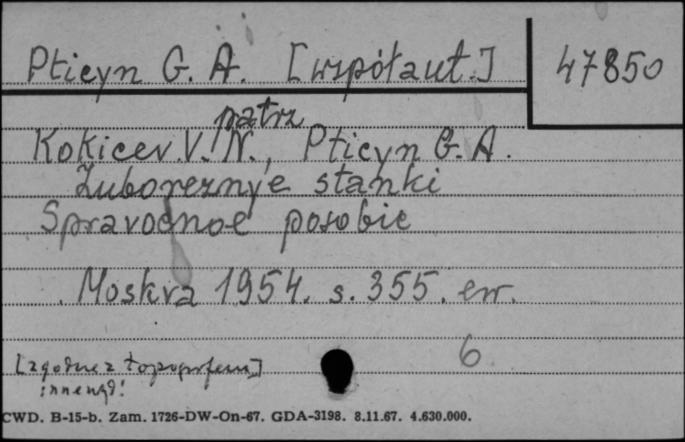 Pticyn G. A. [współaut.] 47850
patrz
Kokicev V. N., Pticyn G. A.
Zuboreznye stanki
Spravočnoe posobie
Moskva 1954. s. 355. err.
6
[zgodne z
CWD. B-15-b. Zam. 1726-DW-On-67. GDA-3198. 8.11.67. 4.630.000.